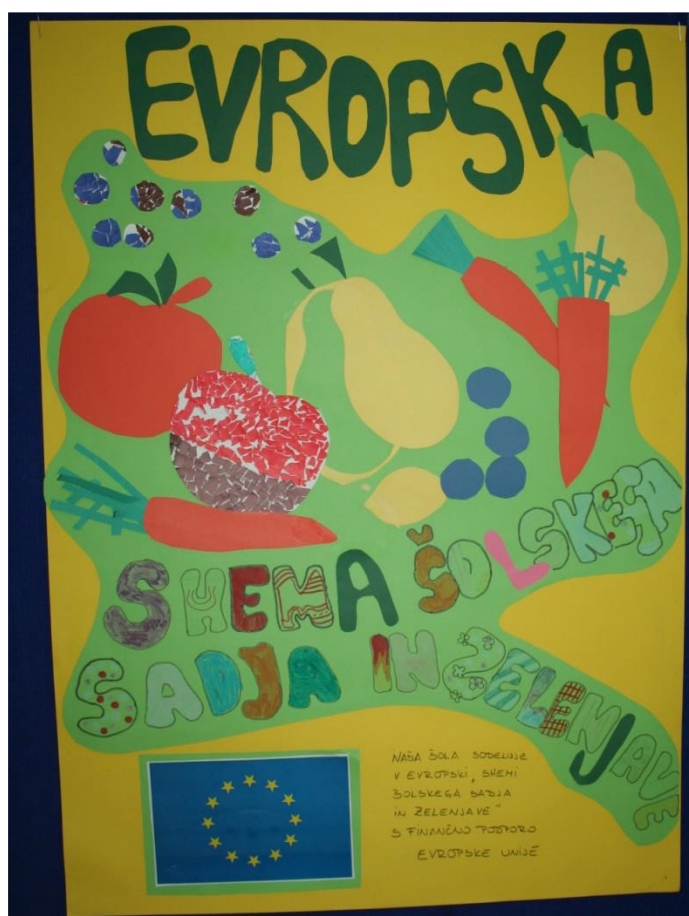 EVROPSKA
SHEMA ŠOLSKEGA
SADJA IN ZELENJAVE
NAŠA ŠOLA SODELUJE
V EVROPSKI „SHEMI
ŠOLSKEGA SADJA
IN ZELENJAVE"
S FINANČNO PODPORO
EVROPSKE UNIJE